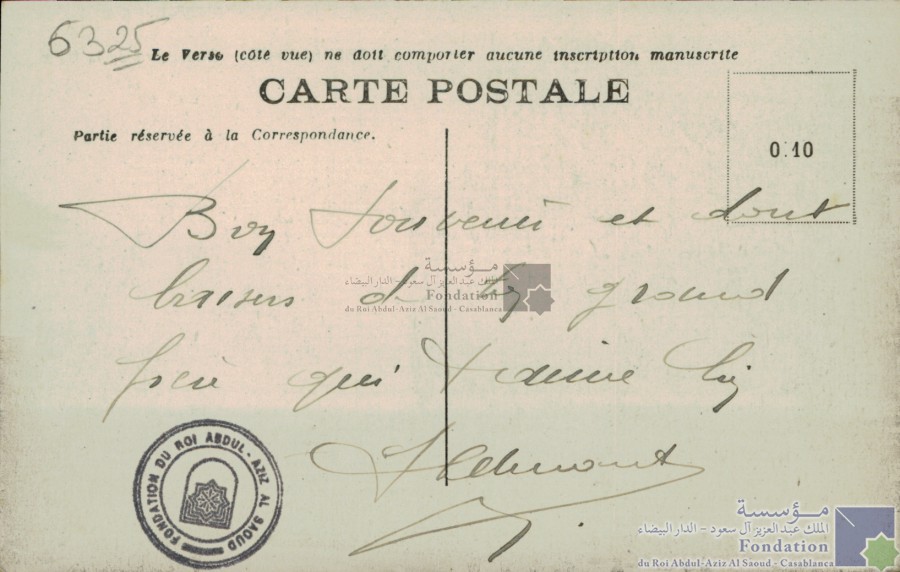 6325
Le Verso (côté vue) ne doit comporter aucune inscription manuscrite
CARTE POSTALE
Partie réservée à la Correspondance.
0.10
Bon souvenir et dout
baisers de ton grand
frère qui t'aime bien
مؤسسة
الملك عبد العزيز آل سعود - الدار البيضاء
Fondation
du Roi Abdul-Aziz Al Saoud - Casablanca
FONDATION DU ROI ABDUL-AZIZ AL SAOUD
مؤسسة
الملك عبد العزيز آل سعود - الدار البيضاء
Fondation
du Roi Abdul-Aziz Al Saoud - Casablanca